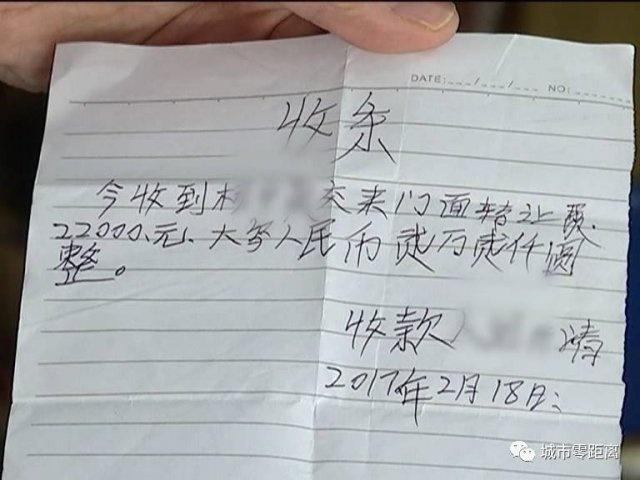 DATE:___/___/___ NO:
收条
今收到 交来门面转让费.
22000.元、大写人民币贰万贰仟圆
整。
收款人
2017年2月18日:
城市零距离